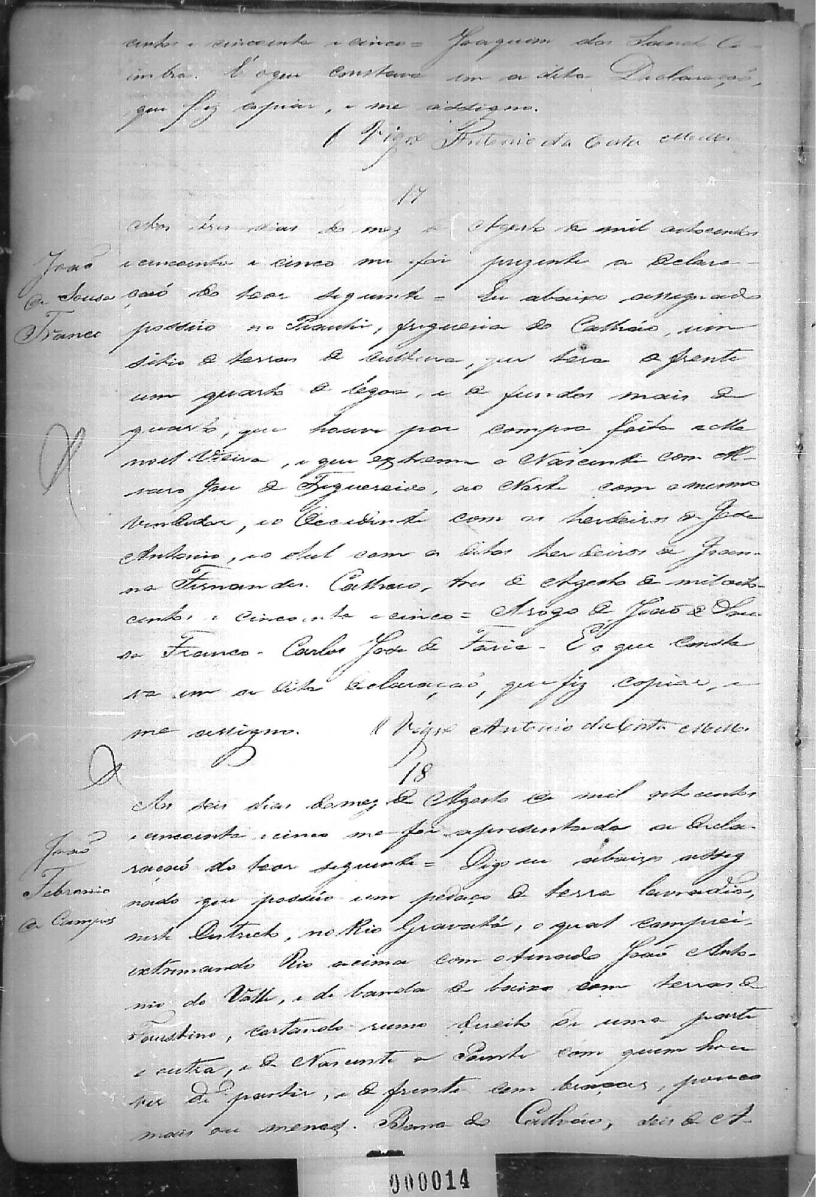 centos e cincoenta e cinco = Joaquim dos Santos Co-
imbra. É o que constava em a dita Declaração,
que fiz copiar, e me assigno.
O Vigrº Antonio da Costa Mell.
17
João
de Sousa
Franco
Aos tres dias do mez de Agosto de mil oitocentos
e cincoenta e cinco me foi prezente a declara-
ção do teor seguinte = Eu abaixo assignado
possuo no, freguesia do, um
sitio de terras de cultura, que tera de frente
um quarto de legoa, e de fundos mais de
quarto, que houve por compra feita a Ma
noel Vieira, e que extrema o Nascente com Al-
varo Jose de Figueiredo, ao Norte com o mesmo
vendedor, e o Occidente com os herdeiros de Jose
Antonio, e o Sul com os ditos herdeiros de Joan-
na Fernandes., tres de Agosto de mil oito-
centos e cincoenta e cinco = Arogo de João de Sou-
sa Franco - Carlos Jose de Faria - É o que consta
va em a dita declaração, que fiz copiar, e
me assigno. O Vigrº Antonio da Costa Mell.
18
João
Febronio
de Campos
Aos seis dias do mez de Agosto de mil oito centos
e cincoenta e cinco me foi apresentada a decla-
ração do teor seguinte = Digo eu abaixo assig
nado que possuo um pedaço de terra lavradia,
neste Districto, no Rio Gravatá, o qual comprei,
extremando Rio acima com o João Anto-
nio do Valle, e de banda de baixo com terras de
Faustino, cortando rumo direito de uma parte
e outra, e de Nascente a Poente com quem hou
ver de partir, e de frente cem braças, pouco
mais ou menos. Barra do, seis de A-
000014